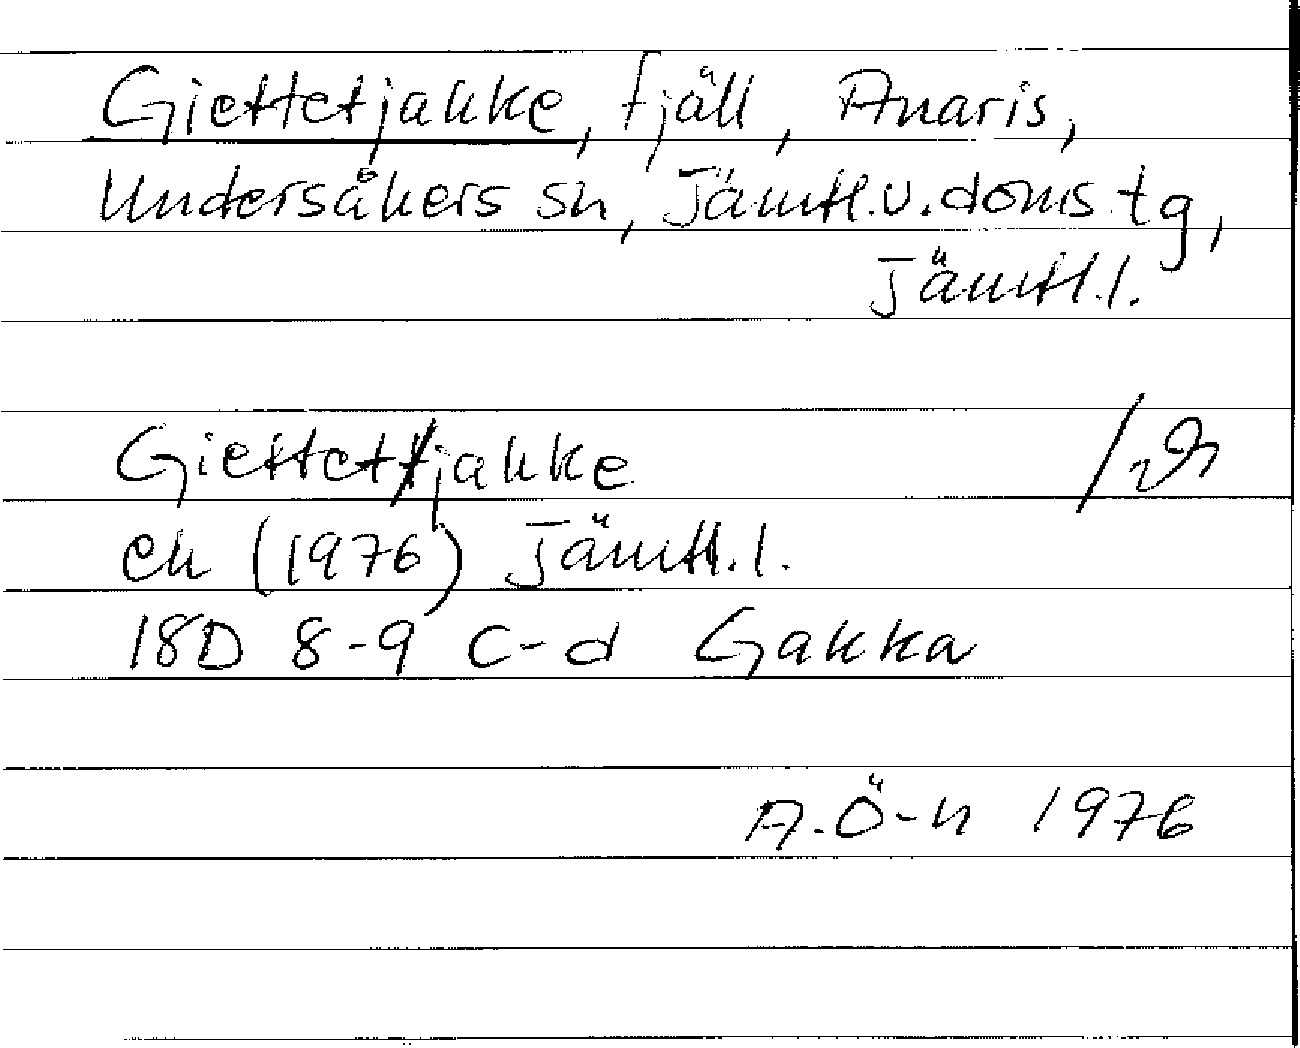 Giettetjakke, fjäll, Anaris,
Undersåkers sn, Jämtl.v.doms.tg,
Jämtl.l.
Giettettjakke
ek (1976) Jämtl.l.
18D 8-9 c-d Gakka
A.Ö-n 1976